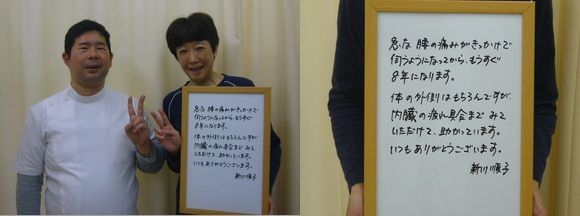 急な腰の痛みがきっかけで
伺うようになってから、もうすぐ
8年になります。
体の外側はもちろんですが、
内臓の疲れ具合までみて
いただけて、助かっています。
いつもありがとうございます。
新川順子